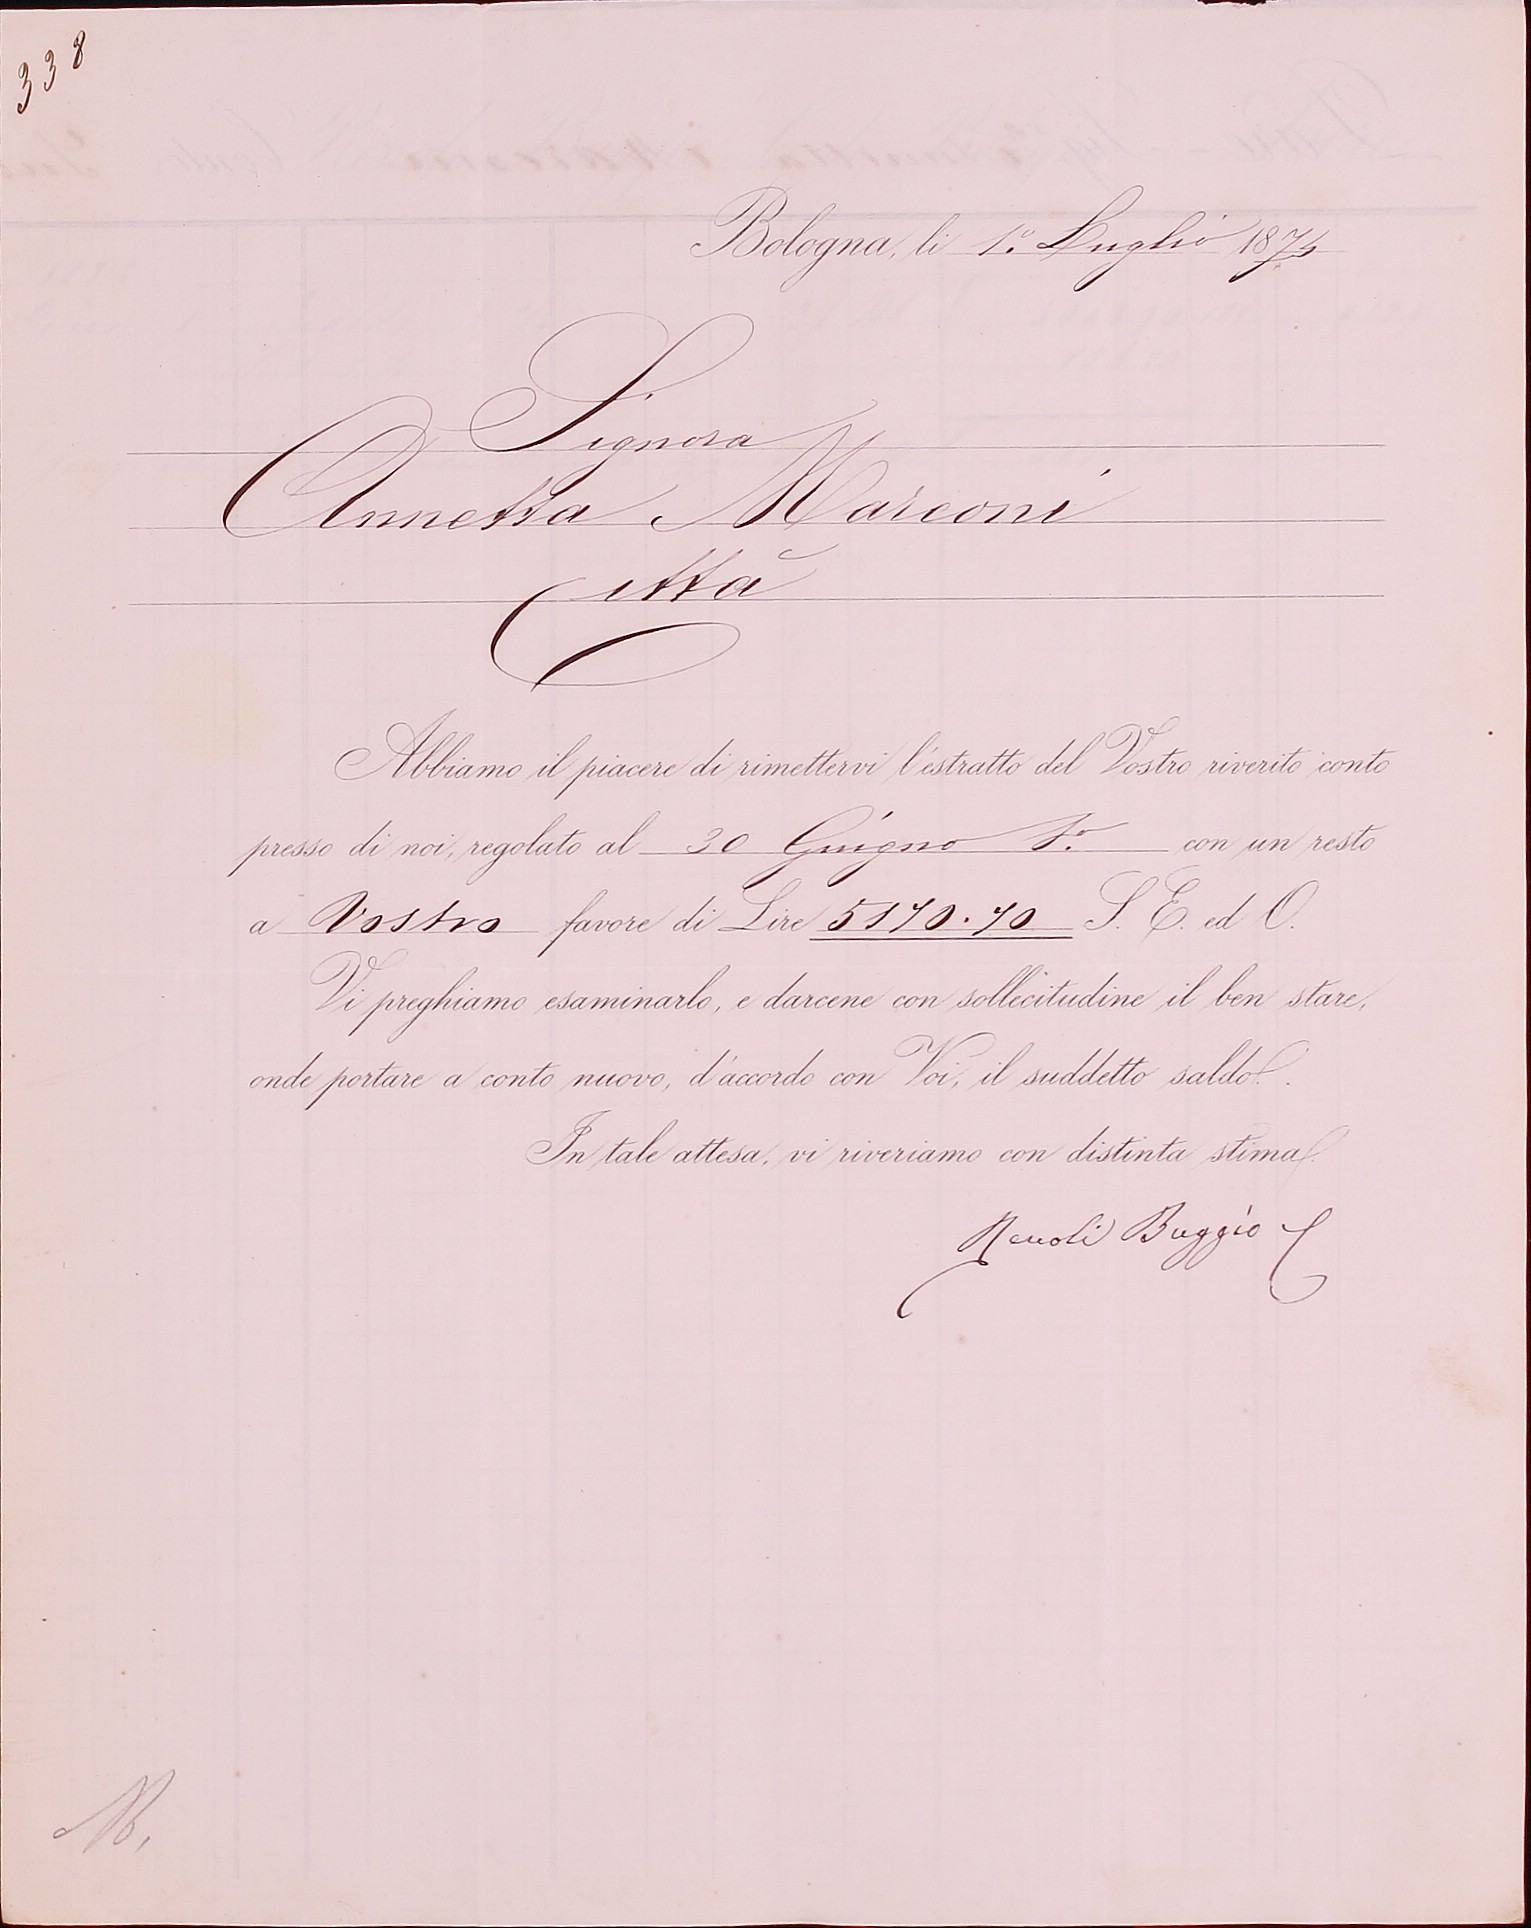 338
Bologna, li 1.º Luglio 1875
Signora
Annetta Marconi
Città
Abbiamo il piacere di rimettervi l'estratto del Vostro riverito conto
presso di noi, regolato al 30 Giugno p.º con un resto
a Vostro favore di Lire 5170.70 S. E. ed O.
Vi preghiamo esaminarlo, e darcene con sollecitudine il ben stare,
onde portare a conto nuovo, d'accordo con Voi, il suddetto saldo.
In tale attesa, vi riveriamo con distinta stima.
Renoli Buggio C